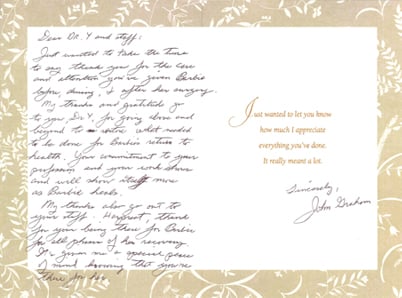 Dear Dr. Y and staff:
Just wanted to take the time
to say thank you for the care
and attention you've given Barbie
before, during, & after her surgery.
My thanks and gratitude go
to you, Dr. Y, for going above and
beyond to what needed
to be done for Barbie's return to
health. Your commitment to your
profession and your work shows
and will show more
as Barbie heals.
My thanks also go out to
your staff. thank
for you being there for Barbie
for all phases of her recovery.
It gives me a special peace
of mind knowing that you're
there for her.
Just wanted to let you know
how much I appreciate
everything you've done.
It really meant a lot.
Sincerely,
John Graham